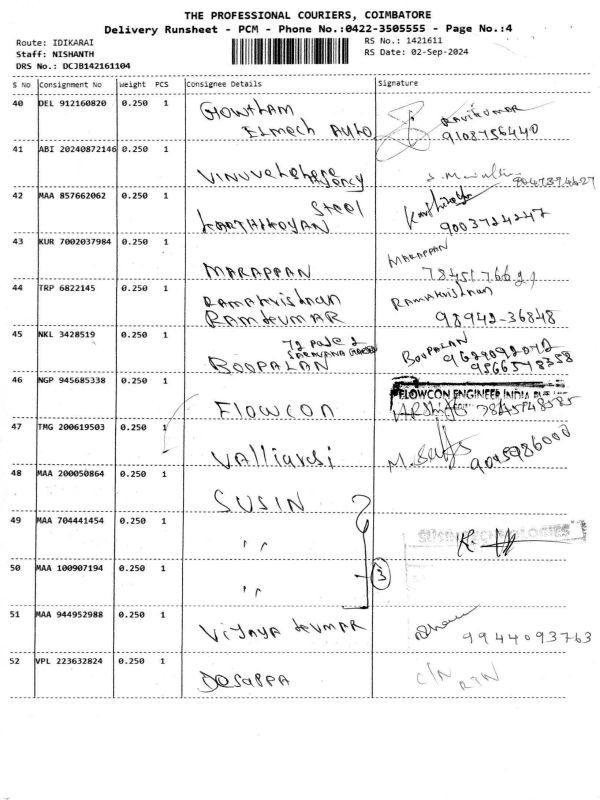 THE PROFESSIONAL COURIERS, COIMBATORE
Delivery Runsheet - PCM - Phone No.:0422-3505555 - Page No.:4
Route: IDIKARAI
Staff: NISHANTH
DRS No.: DCJB142161104
RS No.: 1421611
RS Date: 02-Sep-2024
S No Consignment No Weight PCS Consignee Details Signature
40 DEL 912160820 0.250 1 Gowtham
Elmech Auto
Ravikumar
9108756440
41 ABI 20240872146 0.250 1
Agency
42 MAA 857662062 0.250 1 Steel
KARTHIKOYAN
9003724247
43 KUR 7002037984 0.250 1 MARAPPAN
MARAPPAN
44 TRP 6822145 0.250 1 Ramakrishnan
Ramkumar
Ramakrishnan
98942-36848
45 NKL 3428519 0.250 1
BOOPALAN
BOOPALAN
9566578358
46 NGP 945685338 0.250 1 Flowcon
FLOWCON ENGINEER INDIA
7845748585
47 TMG 200619503 0.250 1
M.
9095986000
48 MAA 200050864 0.250 1 SUSIN
49 MAA 704441454 0.250 1 ,,
SUSIN TECHNOLOGIES
50 MAA 100907194 0.250 1 ,,
3
51 MAA 944952988 0.250 1 Vijaya kumar
9944093763
52 VPL 223632824 0.250 1 Desappa
C/N RTN